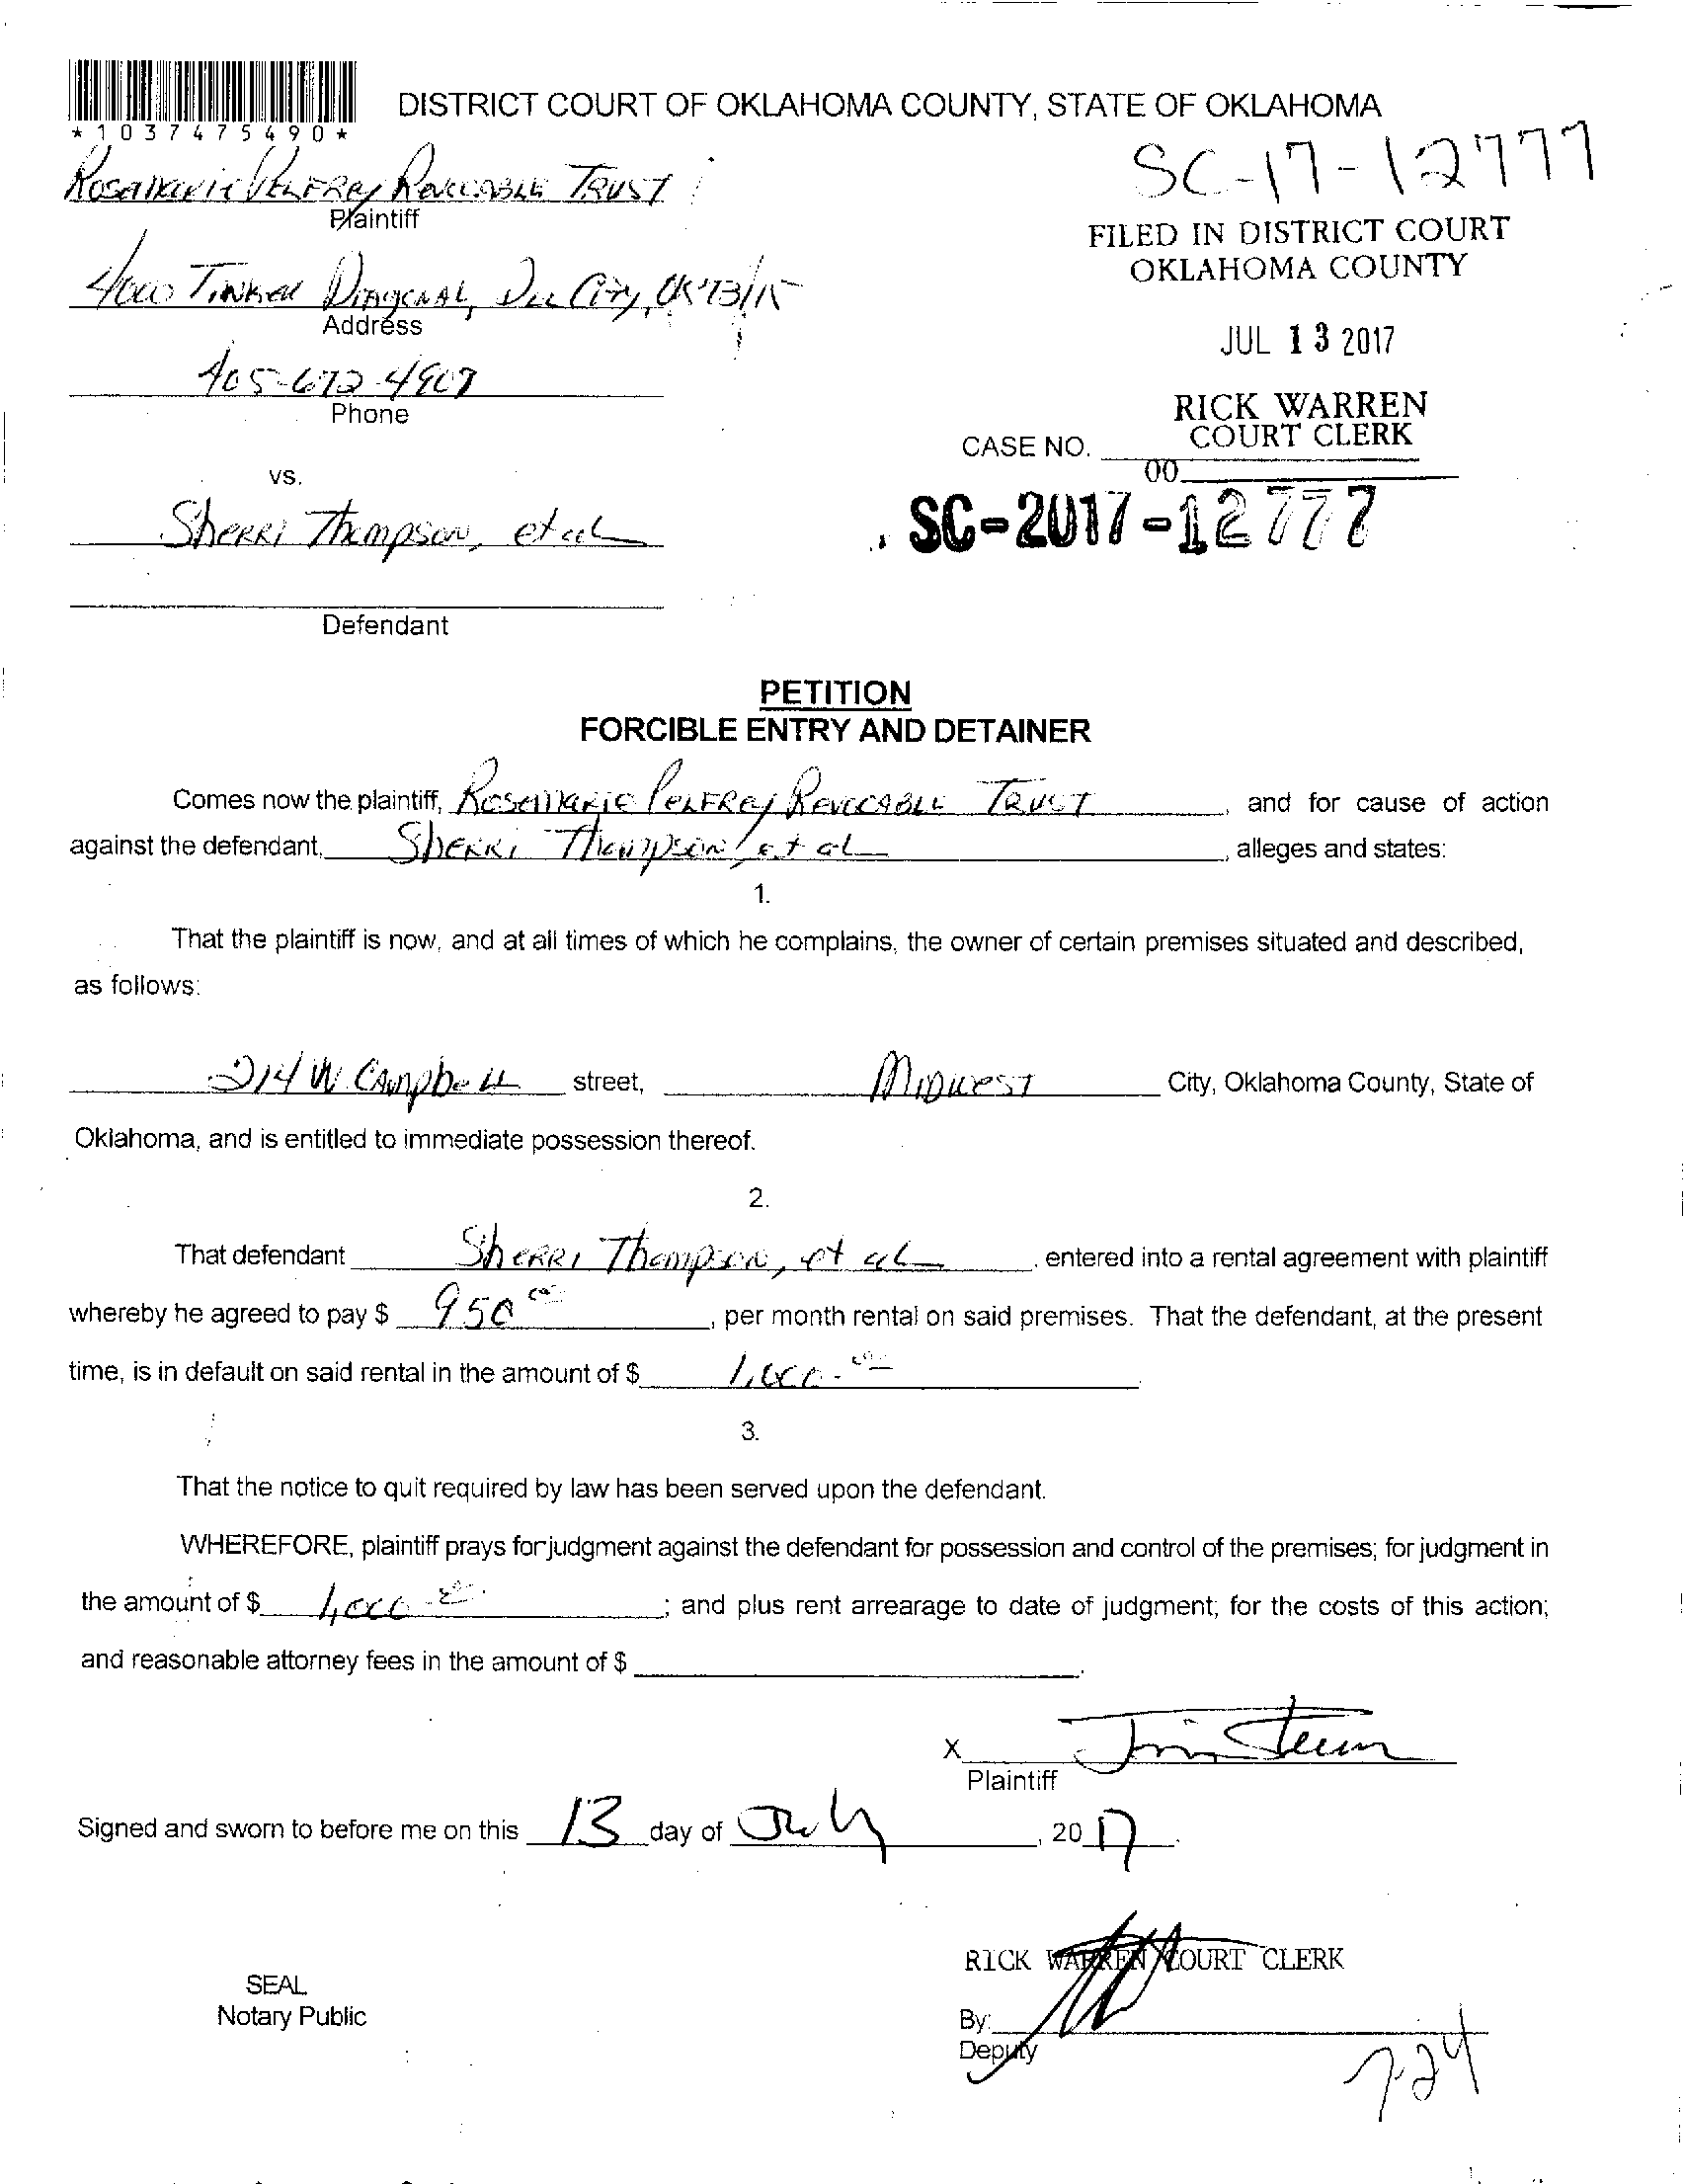 *1037475490*
DISTRICT COURT OF OKLAHOMA COUNTY, STATE OF OKLAHOMA
SC-17-12777
Rosemarie Pelfrey Revocable Trust
Plaintiff
FILED IN DISTRICT COURT
OKLAHOMA COUNTY
4000 Tinker Diagonal, Del City, OK 73115
Address
JUL 13 2017
405-672-4907
Phone
RICK WARREN
COURT CLERK
CASE NO.
00
vs.
SC-2017-12777
Sherri Thompson, et al
Defendant
PETITION
FORCIBLE ENTRY AND DETAINER
Comes now the plaintiff, Rosemarie Pelfrey Revocable Trust, and for cause of action
against the defendant, Sherri Thompson, et al, alleges and states:
1.
That the plaintiff is now, and at all times of which he complains, the owner of certain premises situated and described,
as follows:
214 W. Campbell street, Midwest City, Oklahoma County, State of
Oklahoma, and is entitled to immediate possession thereof.
2.
That defendant Sherri Thompson, et al, entered into a rental agreement with plaintiff
whereby he agreed to pay $ 950 00, per month rental on said premises. That the defendant, at the present
time, is in default on said rental in the amount of $ 1,000.00
3.
That the notice to quit required by law has been served upon the defendant.
WHEREFORE, plaintiff prays for judgment against the defendant for possession and control of the premises; for judgment in
the amount of $ 1,000.00; and plus rent arrearage to date of judgment; for the costs of this action;
and reasonable attorney fees in the amount of $
X
Plaintiff
Signed and sworn to before me on this 13 day of July, 2017.
RICK WARREN COURT CLERK
SEAL
Notary Public
By:
Deputy
7-24